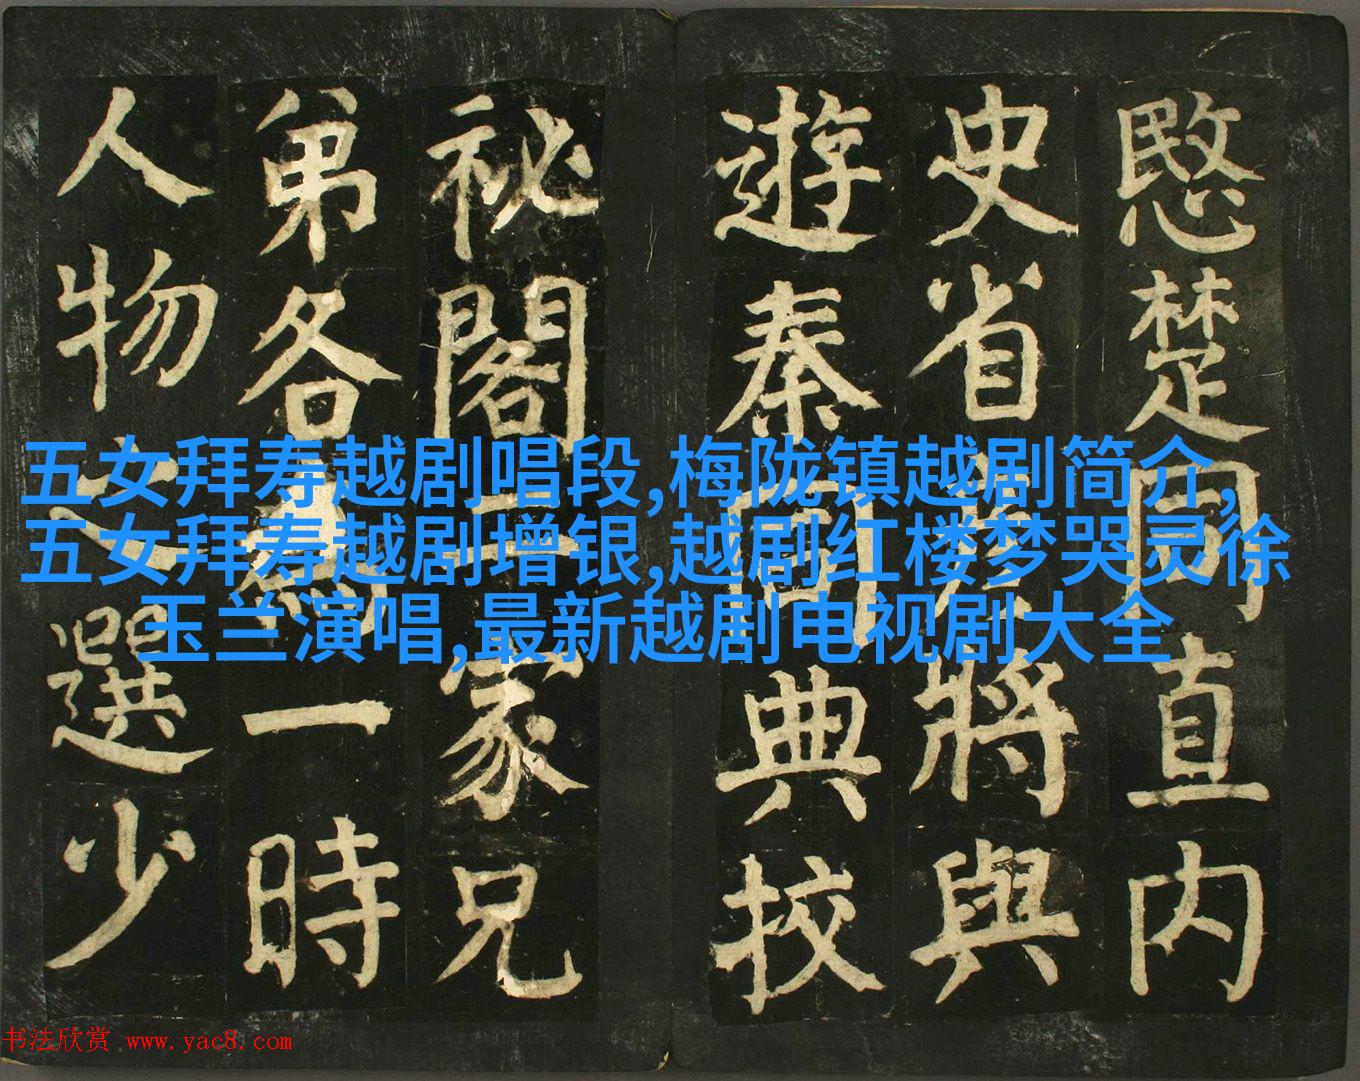 愍楚同直内
史省彦將與
遊秦同典校
祕閣二家兄
弟各為一時
人物之選少
五女拜寿越剧唱段,梅陇镇越剧简介,
五女拜寿越剧增银,越剧红楼梦哭灵徐
玉兰演唱,最新越剧电视剧大全
书法欣赏 www.yac8.com